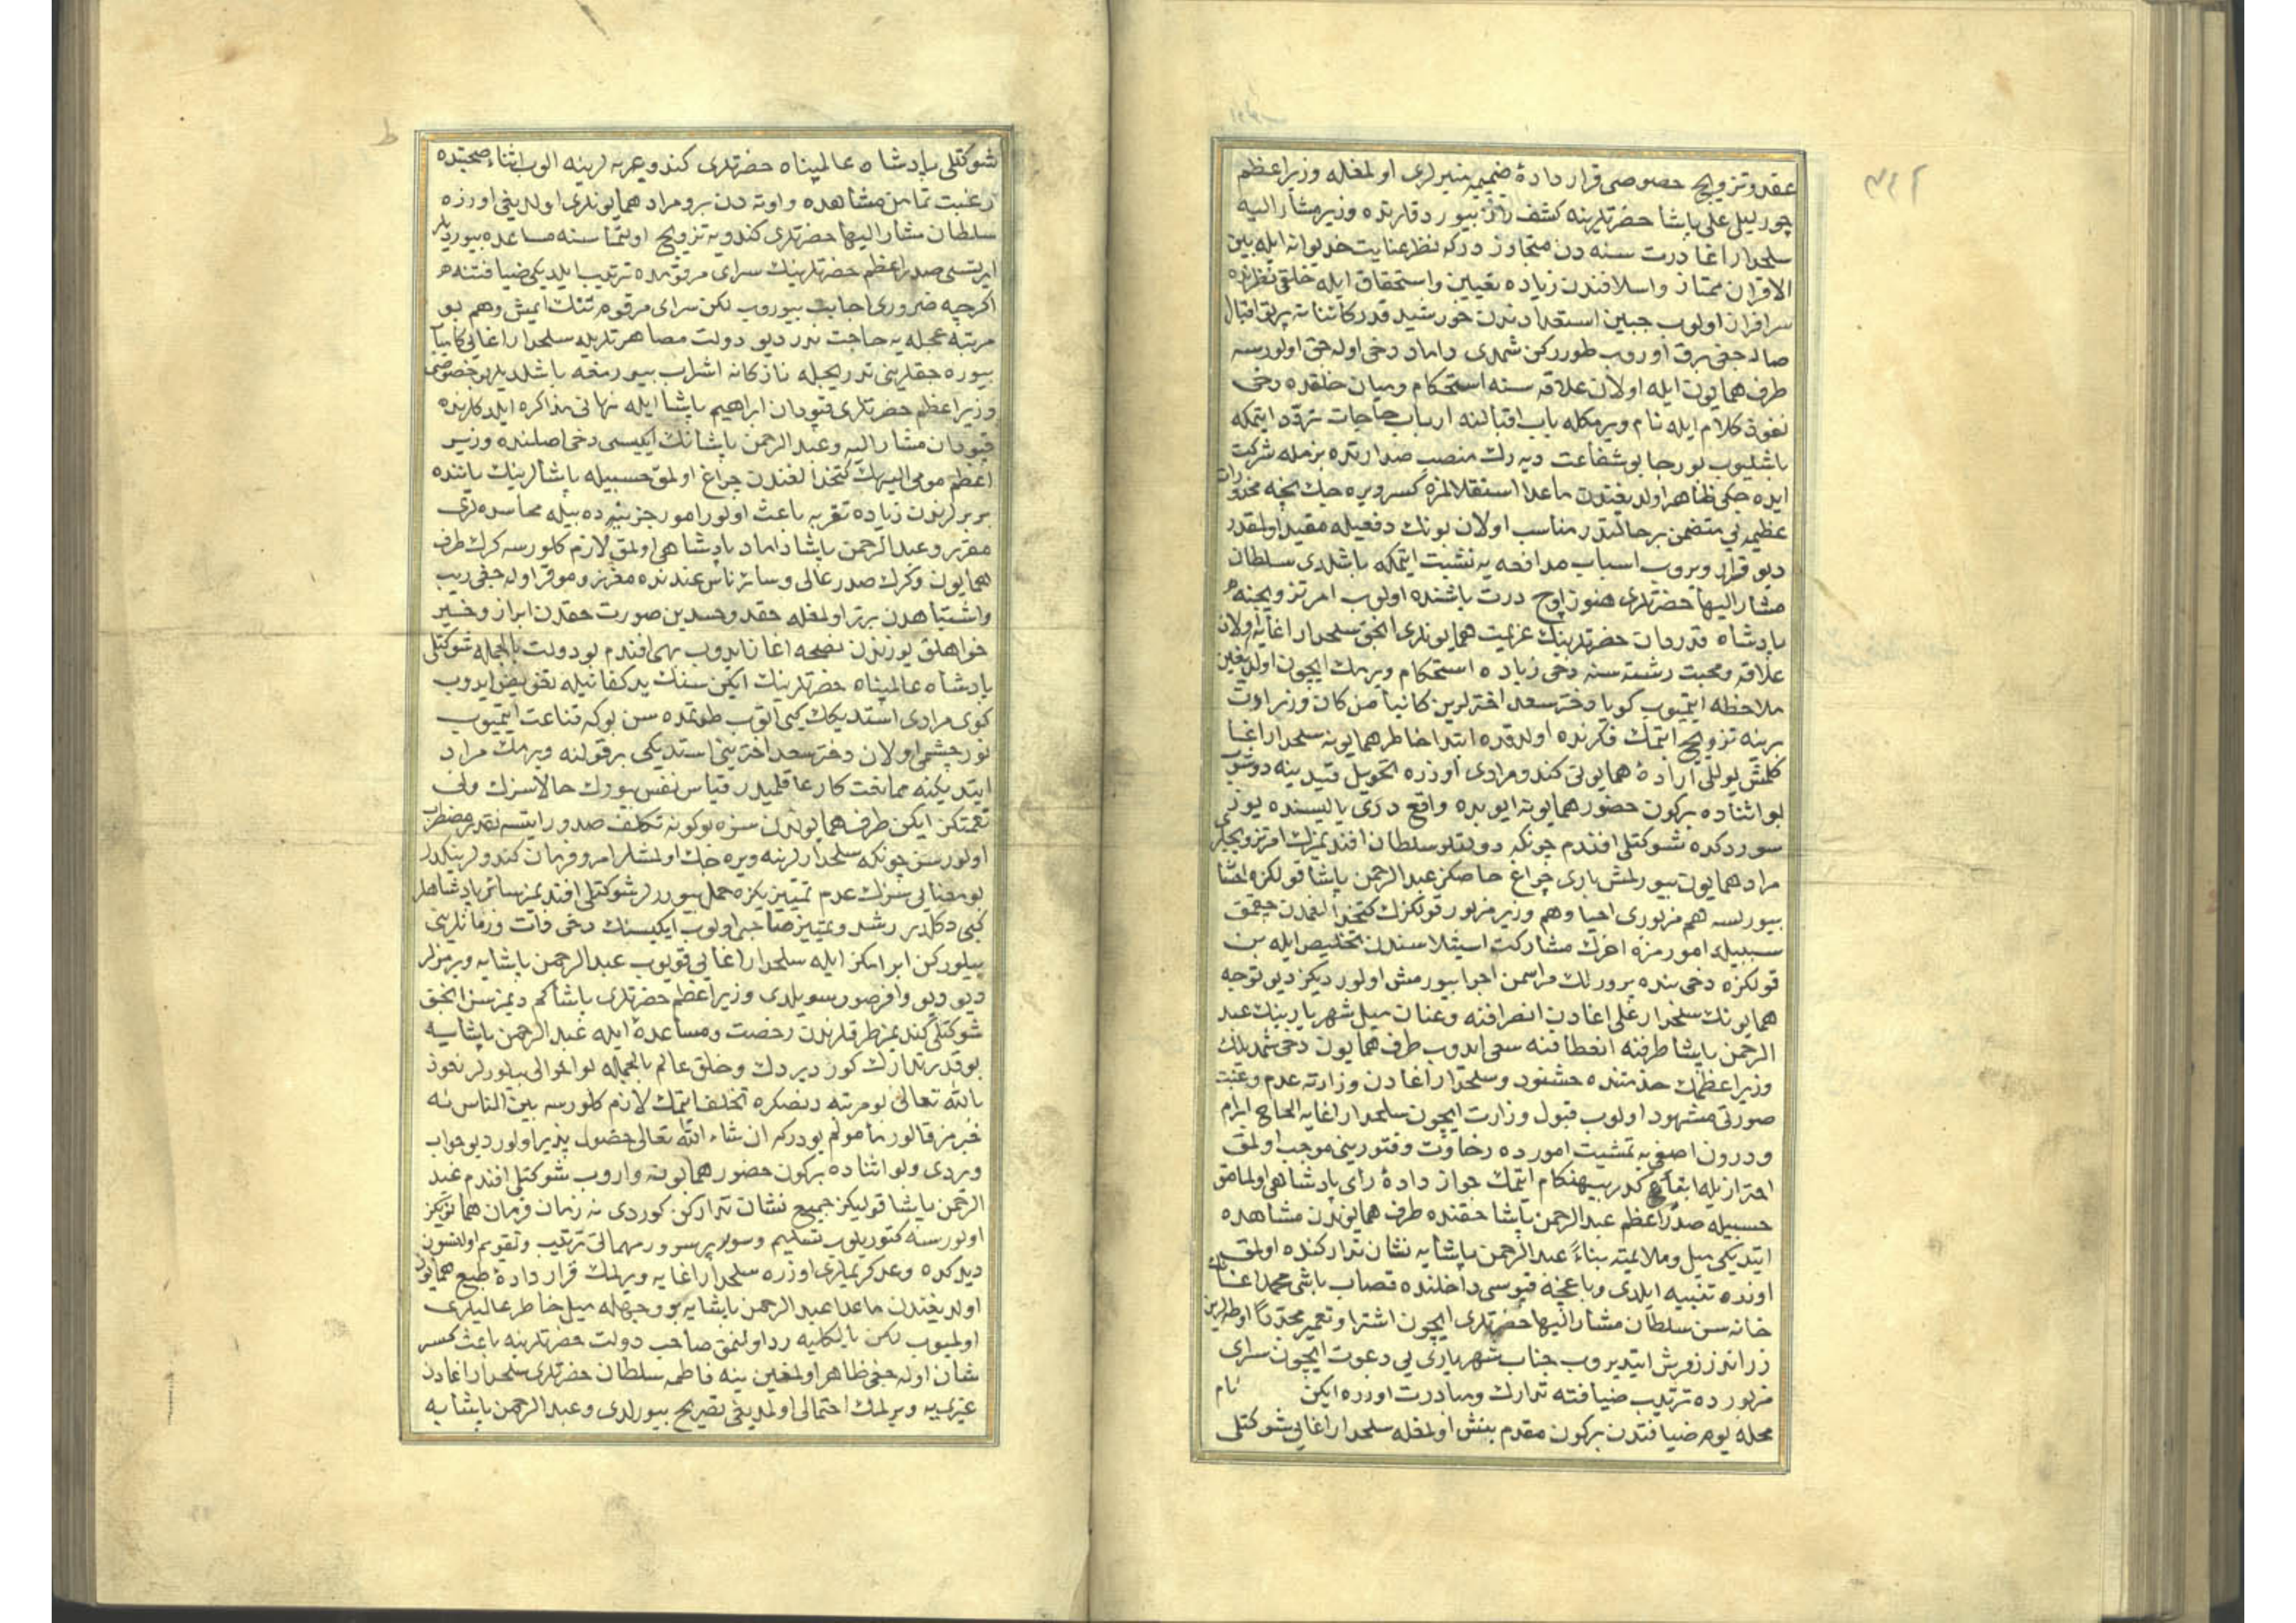 عقد و تزويج خصوصى قرار دادۀ ضمير منيرلرى اولمغله وزير اعظم
چورليلى على پاشا حضرتلرينه كشف راز بيوردقلرنده وزير مشار اليه
سلحدار اغا درت سنه دن متجاوز دركه نظر عنايت خديوانه ايله بين
الاقران ممتاز و اسلافندن زياده تعيين و استحقاق ايله خلقى نظرنده
سرافراز اولوب جبين استعدادندن خورشيد قدر كائناته پرتو اقبال
صاله جغى برق اوروب طوررکن شمدى داماد دخى اوله جق اولورسه
طرف همايون ايله اولان علاقه سنه استحكام و ميان خلقده دخى
نفوذ كلام ايله نام ويرمكله باب اقبالنه ارباب حاجات تردد ايتمكه
باشليوب بو رجا بو شفاعت ديه رك منصب صدارتده بزمله شركت
ايده جكى ظاهر اولديغندن ماعدا استقلالمزه كسر ويره جك نيجه محذورات
عظيمه يى متضمن بر حالتدر مناسب اولان بونك دفعيله مقيد اولمقدر
ديو قرار ويروب اسباب مدافعه يه تشبث ايتمكه باشلدى سلطان
مشار اليها حضرتلرى هنوز اوچ درت ياشنده اولوب امر تزويجنه
پادشاه قدردان حضرتلرينك عزيمت همايونلرى انجق سلحدار اغايه اولان
علاقه و محبت رشته سنه دخى زياده استحكام ويرمك ايچون اولديغين
ملاحظه ايتميوب كويا دختر سعد اخترلرين كائنا من كان وزيرانك
برينه تزويج ايتمك فكرنده اولدقده ابتدا خاطر همايونه سلحدار اغا
كلمش يوللى ارادۀ همايونى كندو مرادى اوزره تحويل قيدينه دوشوب
بو اثناده بركون حضور همايونه ايوبده واقع درى ياليسنده يوز
سوردكده شوكتلى افندم چونكه دولتلو سلطان افنديمزك امر تزويجلرى
مراد همايون بيورلمش بارى چراغ خاصكز عبد الرحمن پاشا قولكزه احسان
بيورلسه هم مزبورى احيا و هم وزير مزبور قولكزك كتخدالغمدن چيقمق
سببيله امورمزه اخرك مشاركت استيلاسندن تخليص ايله بن
قولكزه دخى بنده پرورلك مراسمن اجرا بيورمش اولورديكز ديو توجه
همايونك سلحدار على اغادن انصرافنه و عنان ميل شهريارينك عبد
الرحمن پاشا طرفنه انعطافنه سعى ايدوب طرف همايون دخى شمديلك
وزير اعظمك خدمتنده خشنود و سلحدار اغادن وزارته عدم رغبت
صورتى مشهود اولوب قبول وزارت ايچون سلحدار اغايه الحاح ابرام
و درون اصفى يه تمشيت امورده رخاوت و فتورينى موجب اولمق
احترازيله ايقاع كدر بيهنكام ايتمك جواز دادۀ راى پادشاهى اولمامق
حسبيله صدر اعظم عبد الرحمن پاشا حقنده طرف همايوندن مشاهده
ايتديكى ميل و ملايمته بناءً عبد الرحمن پاشايه نشان تداركنده اولمق
اوزره تنبيه ايلدى و باغچه قپوسى داخلنده قصاب باشى محمد اغانك
خانه سن سلطان مشار اليها حضرتلرى ايچون اشترا و تعمير مجدداً اوطه لرين
زراندز زفرش ايتديروب جناب شهريارى يى دعوت ايچون سراى
مزبورده ترتيب ضيافته تدارك و مبادرت اوزره ايكن نام
محله يوم ضيافتدن بركون مقدم بنش اولمغله سلحدار اغايى شوكتلى
شوكتلى پادشاه عالمپناه حضرتلرى كندو عربه لرينه الوب اثناء صحبتده
رغبت تمامن مشاهده و اوته دن برو مراد همايونلرى اولديغى اوزره
سلطان مشار اليها حضرتلرى كندويه تزويج اولنماسنه مساعده بيورديلر
ايرتسى صدر اعظم حضرتلرينك سراى مرقومده ترتيب ايلديكى ضيافتنه
اكرچه ضرورى اجابت بيوروب لكن سراى مرقوم تنك ايمش و هم بو
مرتبه عجله يه حاجت ندر ديو دولت مصاهرتلريله سلحدار اغايى كامياب
بيوره جقلرينى تدريجله نازكانه اشراب بيورمغه باشلديلر بو خصوصى
وزير اعظم حضرتلرى قپودان ابراهيم پاشا ايله نهانى مذاكره ايلدكلرنده
قپودان مشار اليه و عبد الرحمن پاشانك ايكيسى دخى اصلنده وزير
اعظم مومى اليهك كتخدالغندن چراغ اولمق حسبيله پاشالرينك ياننده
بربرلرندن زياده تقربه باعث اولور امور جزئيه ده بيله محاسده لرى
مقرر و عبد الرحمن پاشا داماد پادشاهى اولمق لازم كلورسه كرك طرف
همايون و كرك صدر عالى و سائر ناس عندنده معزز و موقر اوله جغى ريب
و اشتباهدن برتر اولمغله حقد و حسدين صورت حقدن ابراز و خير
خواهلق يوزندن نصحه اغاز ايدوب بهى افندم بو دولت بالجمله شوكتلى
پادشاه عالمپناه حضرتلرينك ايكن سنك يد كفاتيله تفويض ايدوب
كوى مرادى استديكك كبى القوب طوتمده سن بوكه قناعت ايتميوب
نور چشمى اولان دختر سعد اخترينى استديكى بر قولنه ويرمك مراد
ايتديكنه ممانعت كار عاقلميدر قياس نفس بيورك حالا سزك ولى
نعمتكز ايكن طرف همايوندن سزه بو كونه تكلف صدور ايتسه نقدر مضطرب
اولورسز چونكه سلحدارلرينه ويره جك اولمشلر امر و فرمان كندولرينكدر
بو معنايى سزك عدم تمييزيكزه حمل بيوررلر شوكتلى افنديمز سائر پادشاهلر
كبى دكلدر رشد و تمييز صاحبى اولوب ايكيسنك دخى ذات و زماتلرينى
بيلورکن ابرامكز ايله سلحدار اغايى قويوب عبد الرحمن پاشايه ويرمزلر
ديو ديو وافر صور سويلدى وزير اعظم حضرتلرى پاشا كه ديمز سن انجق
شوكتلى افنديمز طرفلرندن رخصت و مساعدۀ ايله عبد الرحمن پاشايه
بو قدر تدارك كوزديردك و خلق عالم بالجمله بو احوالى بيلورلر نعوذ
بالله تعالى بو مرتبه دنصكره تخلف ايتمك لازم كلورسه بين الناس نه
خبرمز قالور مأمولم بودركه ان شاء الله تعالى حصول پذير اولور ديو جواب
ويردى و بو اثناده بركون حضور همايونه واروب شوكتلى افندم عبد
الرحمن پاشا قوليكز جميع نشان تداركن كوردى نه زمان فرمان همايونكز
اولورسه كتوريلوب تسليم و سور پرسرور مهماتى ترتيب و تقويم اولنسون
ديدكده وعد كريملرى اوزره سلحدار اغايه ويرلمك قرار دادۀ طبع همايون
اولديغندن ماعدا عبد الرحمن پاشايه بر وجهله ميل خاطر عاليلرى
اولميوب لكن بالكليه رد اولنمق صاحب دولت حضرتلرينه باعث كسر
شان اوله جغى ظاهر اولمغين ينه فاطمه سلطان حضرتلرى سلحدار اغادن
غيرى يه ويرلمك احتمالى اولمديغى تصريح بيورلدى و عبد الرحمن پاشايه